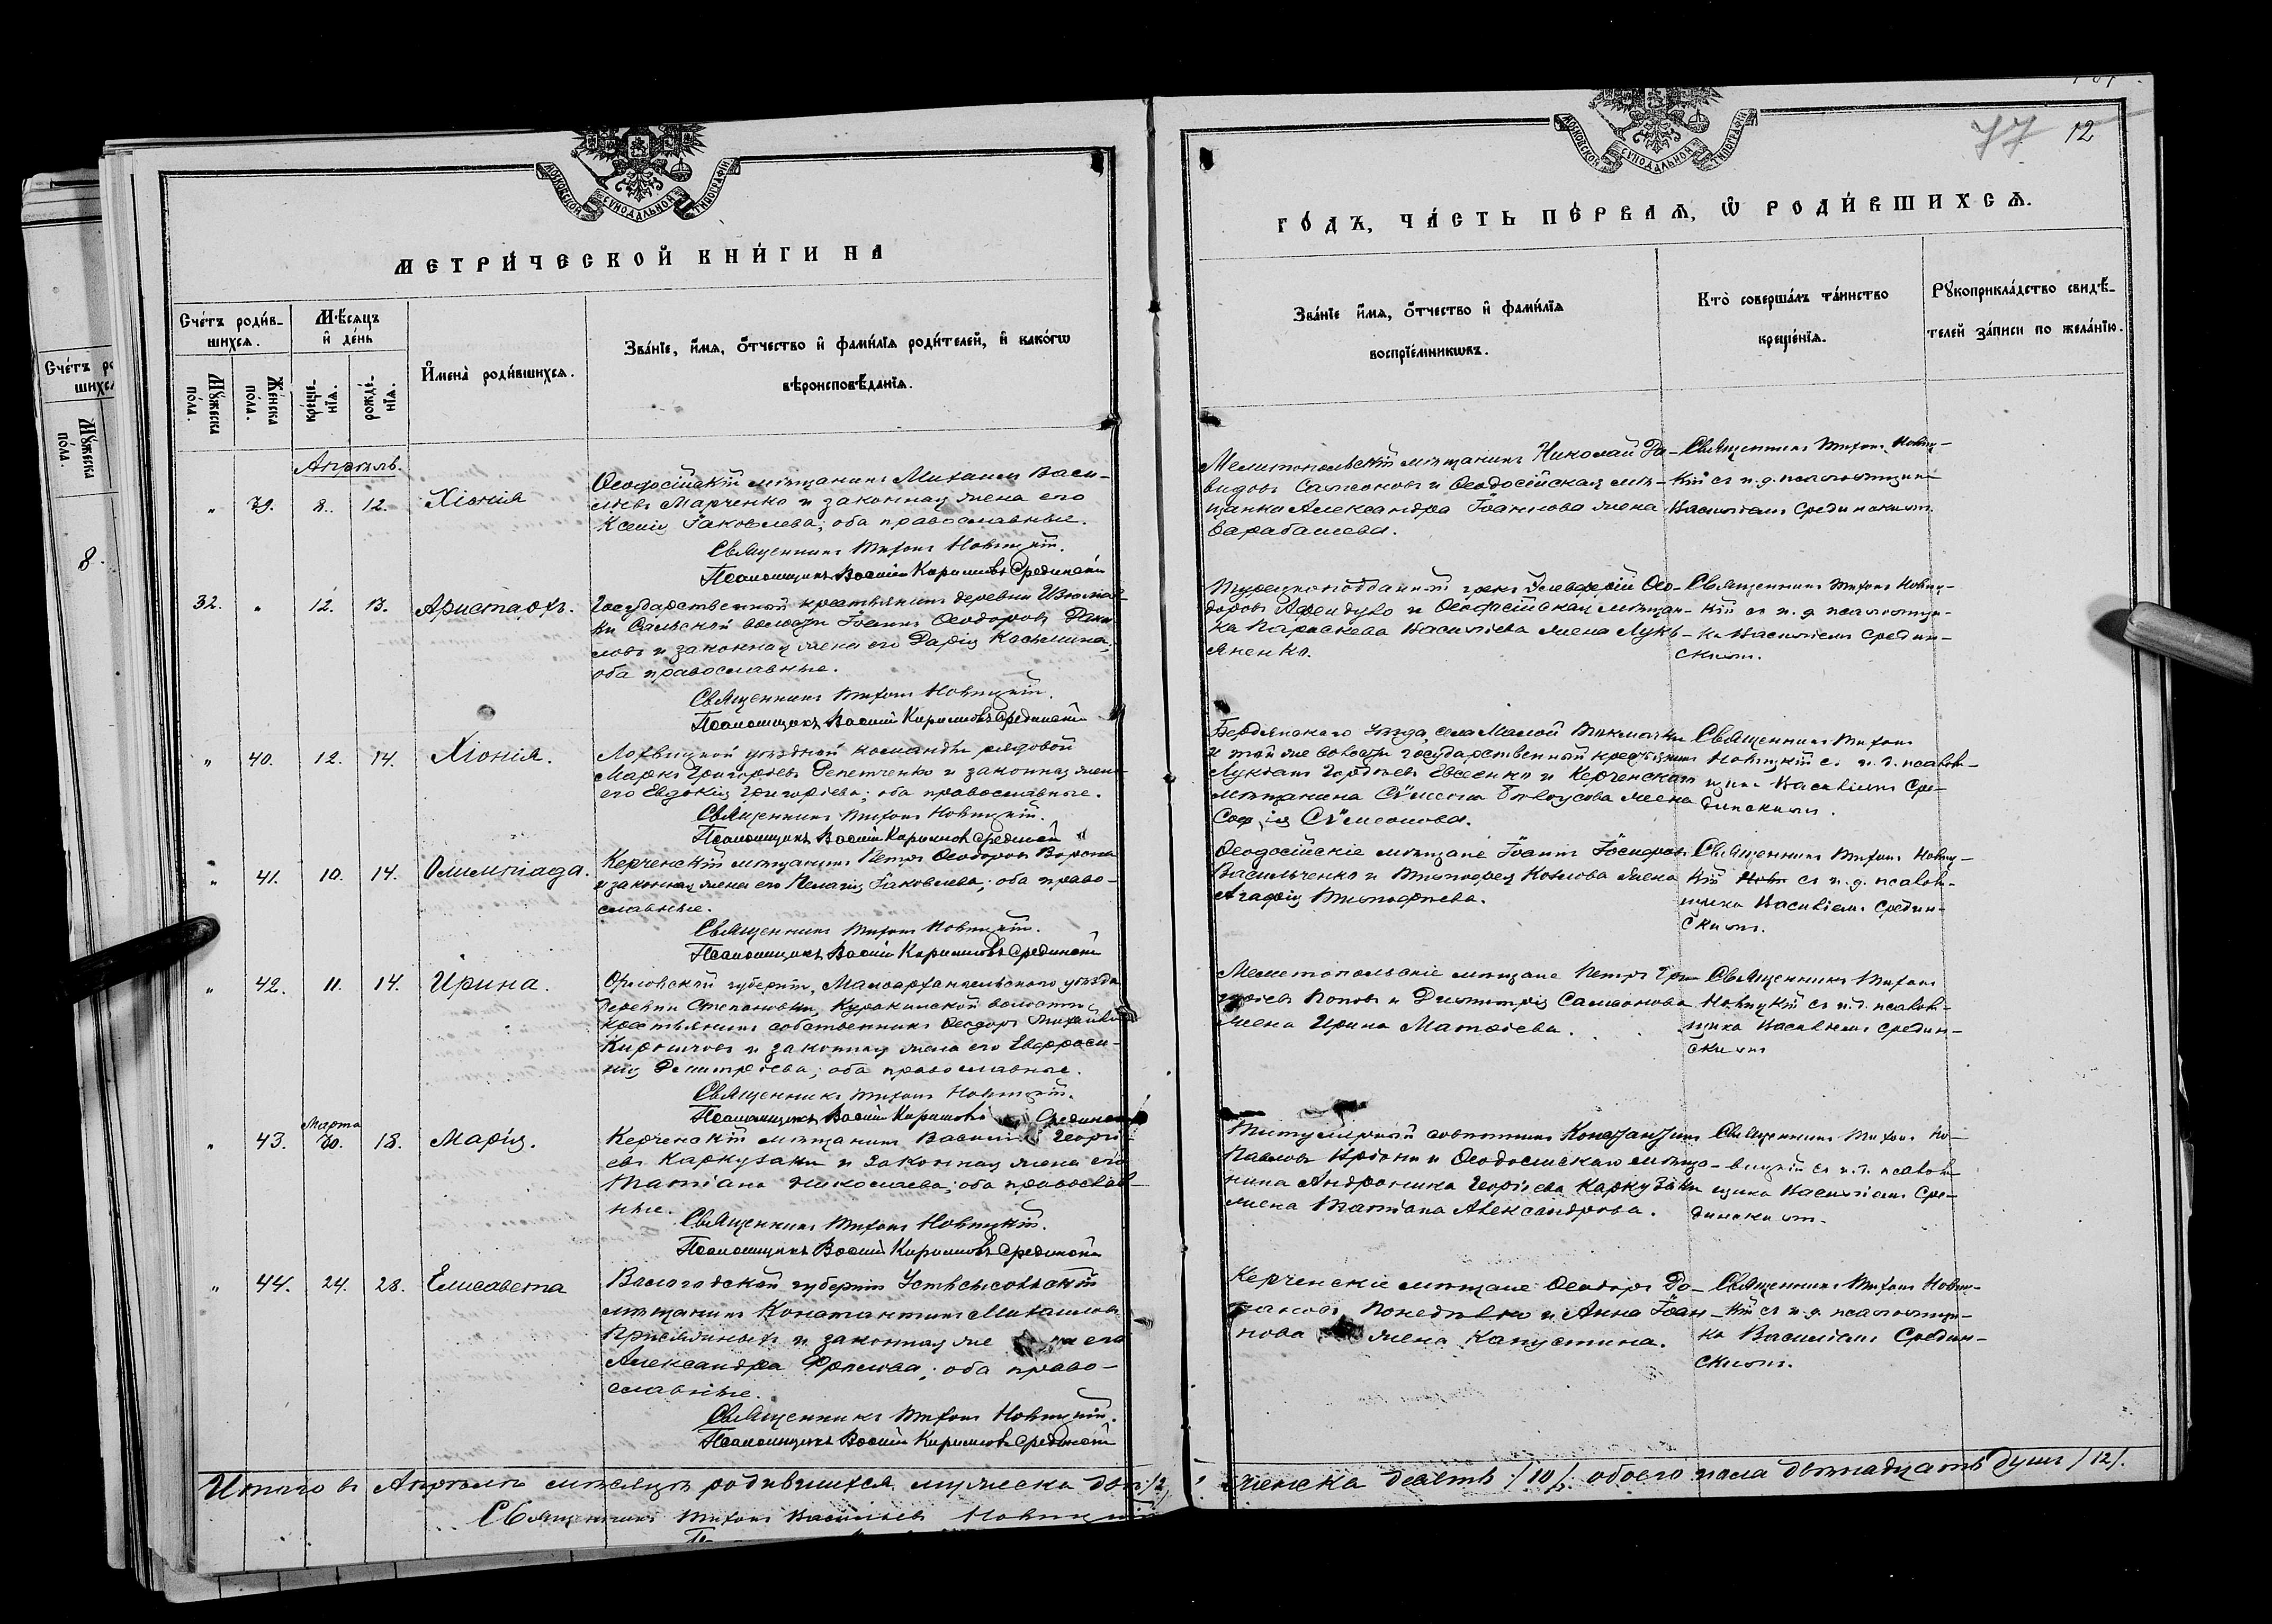 МОСКОВСКОЙ СѴНОДАЛЬНОЙ ТИПОГРАФІИ
МЕТРИ́ЧЕСКОЙ КНИ́ГИ НА
Сче́тъ роди́в-
шихсѧ.
Мꙋ́жеска
по́ла.
Же́нска
по́ла.
Мѣ́сѧцъ
и҆ де́нь
креще́-
нїѧ.
рожде́-
нїѧ.
И҆мена̀ роди́вшихсѧ.
Зва́нїе, и҆́мѧ, ѻ҆́тчество и҆ фами́лїѧ роди́телей, и҆ како́гѡ
вѣроисповѣ́данїѧ.
Апрѣль.
" 39. 8. 12. Хіонія
Ѳеодосійскій мѣщанинъ Михаилъ Васи-
льевъ Марченко и законная жена его
Ксенія Іаковлева; оба православные.
Священникъ Тихонъ Новицкій.
Псаломщикъ Василій Кириловъ Срединскій
32. " 12. 13. Аристархъ.
Государственный крестьянинъ деревни
волости Іоаннъ Ѳеодоровъ
и законная жена его Дарія Косьмина,
оба православные.
Священникъ Тихонъ Новицкій.
Псаломщикъ Василій Кириловъ Срединскій
" 40. 12. 14. Хіонія.
Лохвицкой уѣздной команды рядовой
Маркъ Григорьевъ Репетченко и законная жена
его Евдокія Григорьева; оба православные.
Священникъ Тихонъ Новицкій.
Псаломщикъ Василій Кириловъ Срединскій
" 41. 10. 14. Олимпіада.
Керченскій мѣщанинъ Петръ Ѳеодоровъ Ворона
и законная жена его Пелагія Іаковлева; оба право-
славные.
Священникъ Тихонъ Новицкій.
Псаломщикъ Василій Кириловъ Срединскій
" 42. 11. 14. Ирина.
Орловской губерніи, Малоархангельскаго уѣзда
деревни Степановки, Куракинской волости,
крестьянинъ собственникъ Ѳеодоръ Михайловъ
Кирпичовъ и законная жена его Евфроси-
нія Димитріева; оба православные.
Священникъ Тихонъ Новицкій.
Псаломщикъ Василій Кириловъ Срединскій
Марта
" 43. 30. 18. Марія.
Керченскій мѣщанинъ Василій Георгі-
евъ Каркузаки и законная жена его
Татіана Николаева; оба православ-
ные.
Священникъ Тихонъ Новицкій.
Псаломщикъ Василій Кириловъ Срединскій
" 44. 24. 28. Елисавета
Вологодской губерніи Устьсысольскій
мѣщанинъ Константинъ Михаиловъ
и законная жена его
Александра Фролова; оба право-
славные.
Священникъ Тихонъ Новицкій.
Псаломщикъ Василій Кириловъ Срединскій
Итого въ Апрѣлѣ мѣсяцѣ родившихся мужеска два /2/
Священникъ Тихонъ Васильевъ Новицкій
77 12
МОСКОВСКОЙ СѴНОДАЛЬНОЙ ТИПОГРАФІИ
ГО́ДЪ, ЧА́СТЬ ПЕ́РВАѦ, Ѡ҆ РОДИ́ВШИХСѦ.
Зва́нїе и҆́мѧ, ѻ҆́тчество и҆ фами́лїѧ
воспрїе́мникѡвъ.
Кто̀ соверша́лъ та́инство
креще́нїѧ.
Рꙋкоприкла́дство свидѣ́-
телей за́писи по жела́нїю.
Мелитопольскій мѣщанинъ Николай Да-
видовъ Самсоновъ и Ѳеодосійская мѣ-
щанка Александра Іоаннова жена
Барабашева.
Священникъ Тихонъ Новиц-
кій съ и. д. псаломщика
Василіемъ Срединскимъ.
Турецкоподданный грекъ Елевферій Ѳео-
доровъ и Ѳеодосійская мѣщан-
ка Параскева Васильева жена Лукь-
яненко.
Священникъ Тихонъ Новиц-
кій съ и. д. псаломщи-
ка Василіемъ Средин-
скимъ.
Бердянскаго уѣзда, села Малой Токмачки
и той же волости государственный крестьянинъ
Лукіанъ Гордѣевъ Евсеенко и Керченскаго
мѣщанина Сѵмеона Бѣлоусова жена
Софія Сѵмеонова.
Священникъ Тихонъ
Новицкій съ и. д. псалом-
щика Василіемъ Сре-
динскимъ.
Ѳеодосійскіе мѣщане Іоаннъ Іосифовъ
Васильченко и Тимофея Козлова жена
Агафія Тимофѣева.
Священникъ Тихонъ Новиц-
кій съ и. д. псалом-
щика Василіемъ Средин-
скимъ.
Мелитопольскіе мѣщане Петръ Гри-
горьевъ Поповъ и Димитрія Самсонова
жена Ирина Матѳіева.
Священникъ Тихонъ
Новицкій съ и. д. псалом-
щика Василіемъ Средин-
скимъ
Титулярный совѣтникъ Константинъ
Павловъ и Ѳеодосійскаго мѣща-
нина Андроника Георгіева Каркузаки
жена Татіана Александрова.
Священникъ Тихонъ Но-
вицкій съ и. д. псалом-
щика Василіемъ Сре-
динскимъ.
Керченскіе мѣщане Ѳеодоръ
и Анна Іоан-
нова жена Капустина.
Священникъ Тихонъ Новиц-
кій съ и. д. псаломщи-
ка Василіемъ Средин-
скимъ.
женска десять /10/ обоего пола двѣнадцать душъ /12/.
Сче́тъ
Мꙋ́жеска
по́ла.
8.